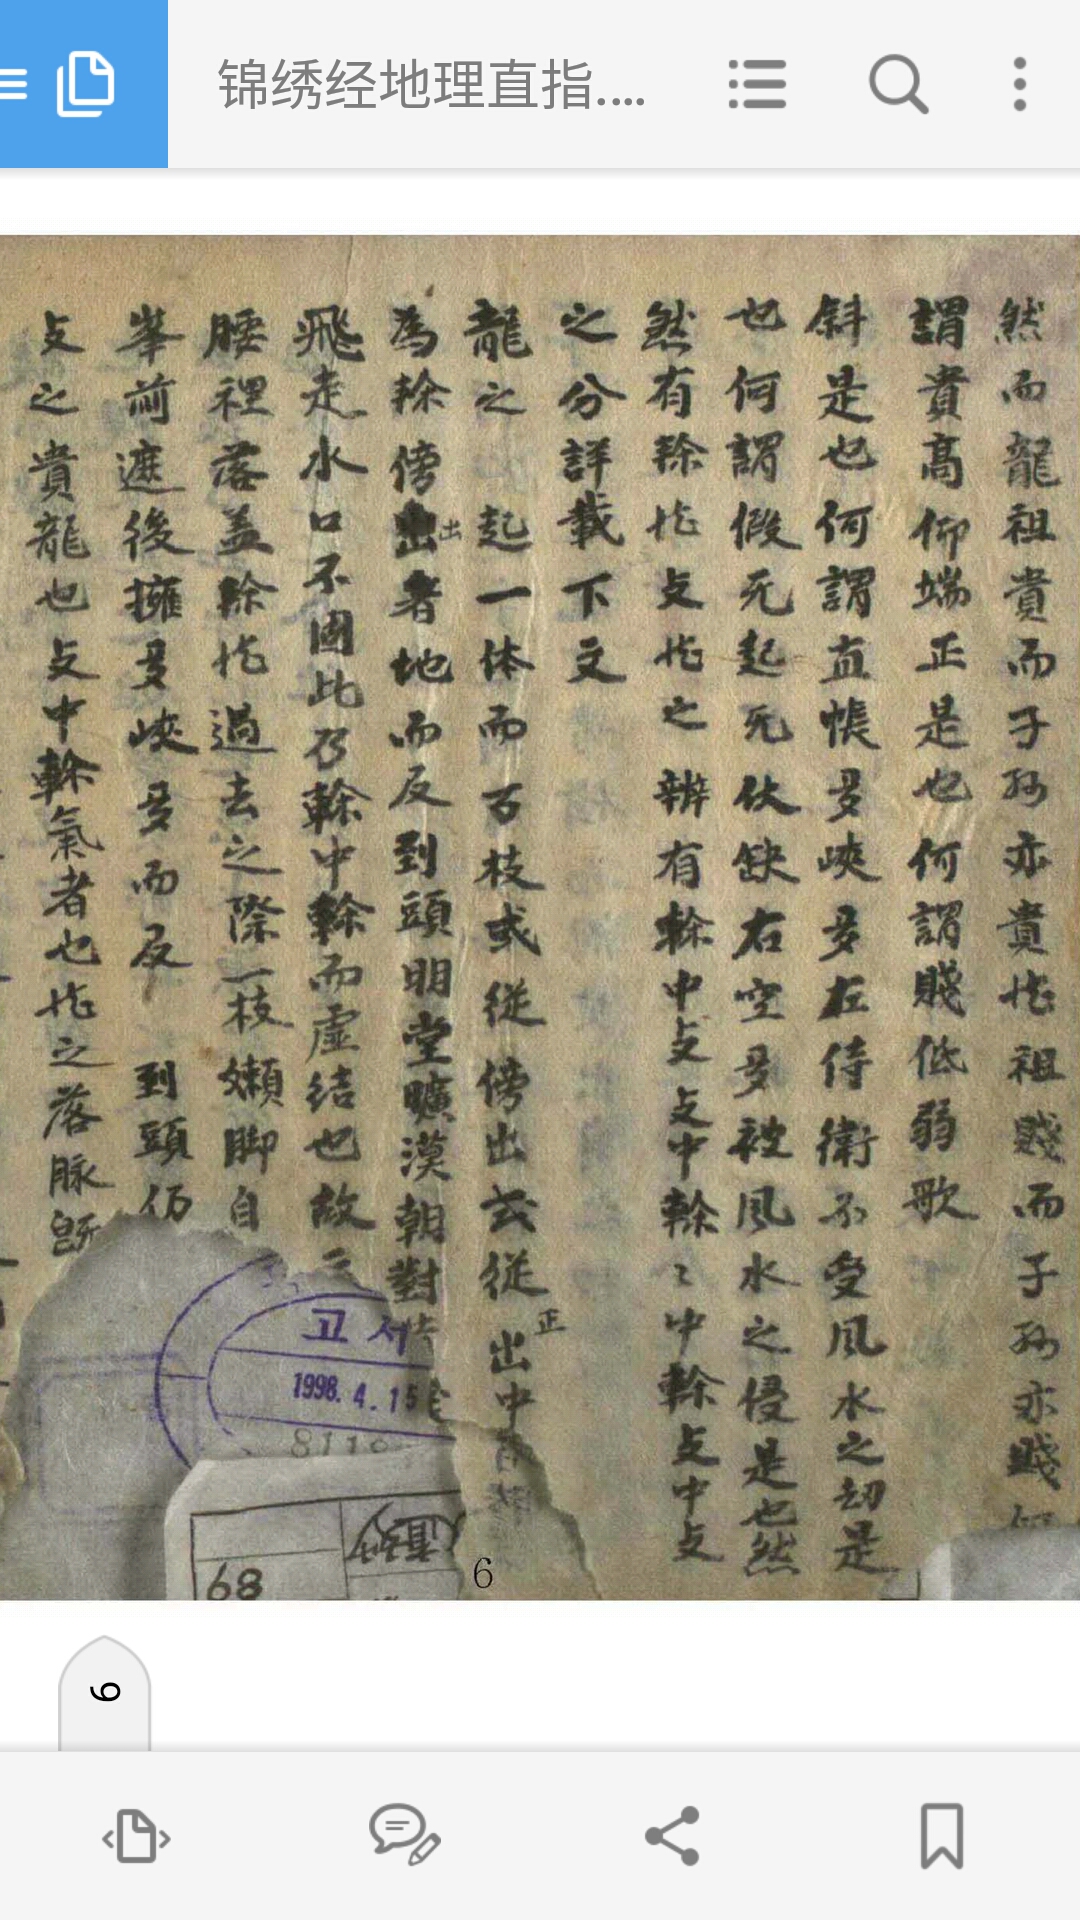 锦绣经地理直指.…
然而龍祖貴而子孙亦貴枝祖賤而子孙亦賤何
謂貴高仰端正是也何謂賤低弱歌
斜是也何謂直帳多峽多左侍衛不受風水之刼是
也何謂假无起无伏缺右空多被風水之侵是也然
然有幹枝支枝之辨有幹中支支中幹〻中幹支中支
之分詳載下文
龍之起一体而百枝或従傍出或従正出中
為幹傍出者地而反到頭明堂曠漠朝對
飛走水口不固此乃幹中幹而虛结也故
腰裡落盖幹枝過去之際一枝嫩脚自
峯前遮後擁多峽多而反到頭仍
支之貴龍也支中幹氣者也枝之落脉
고서
1998.4.15
811
68
6
6